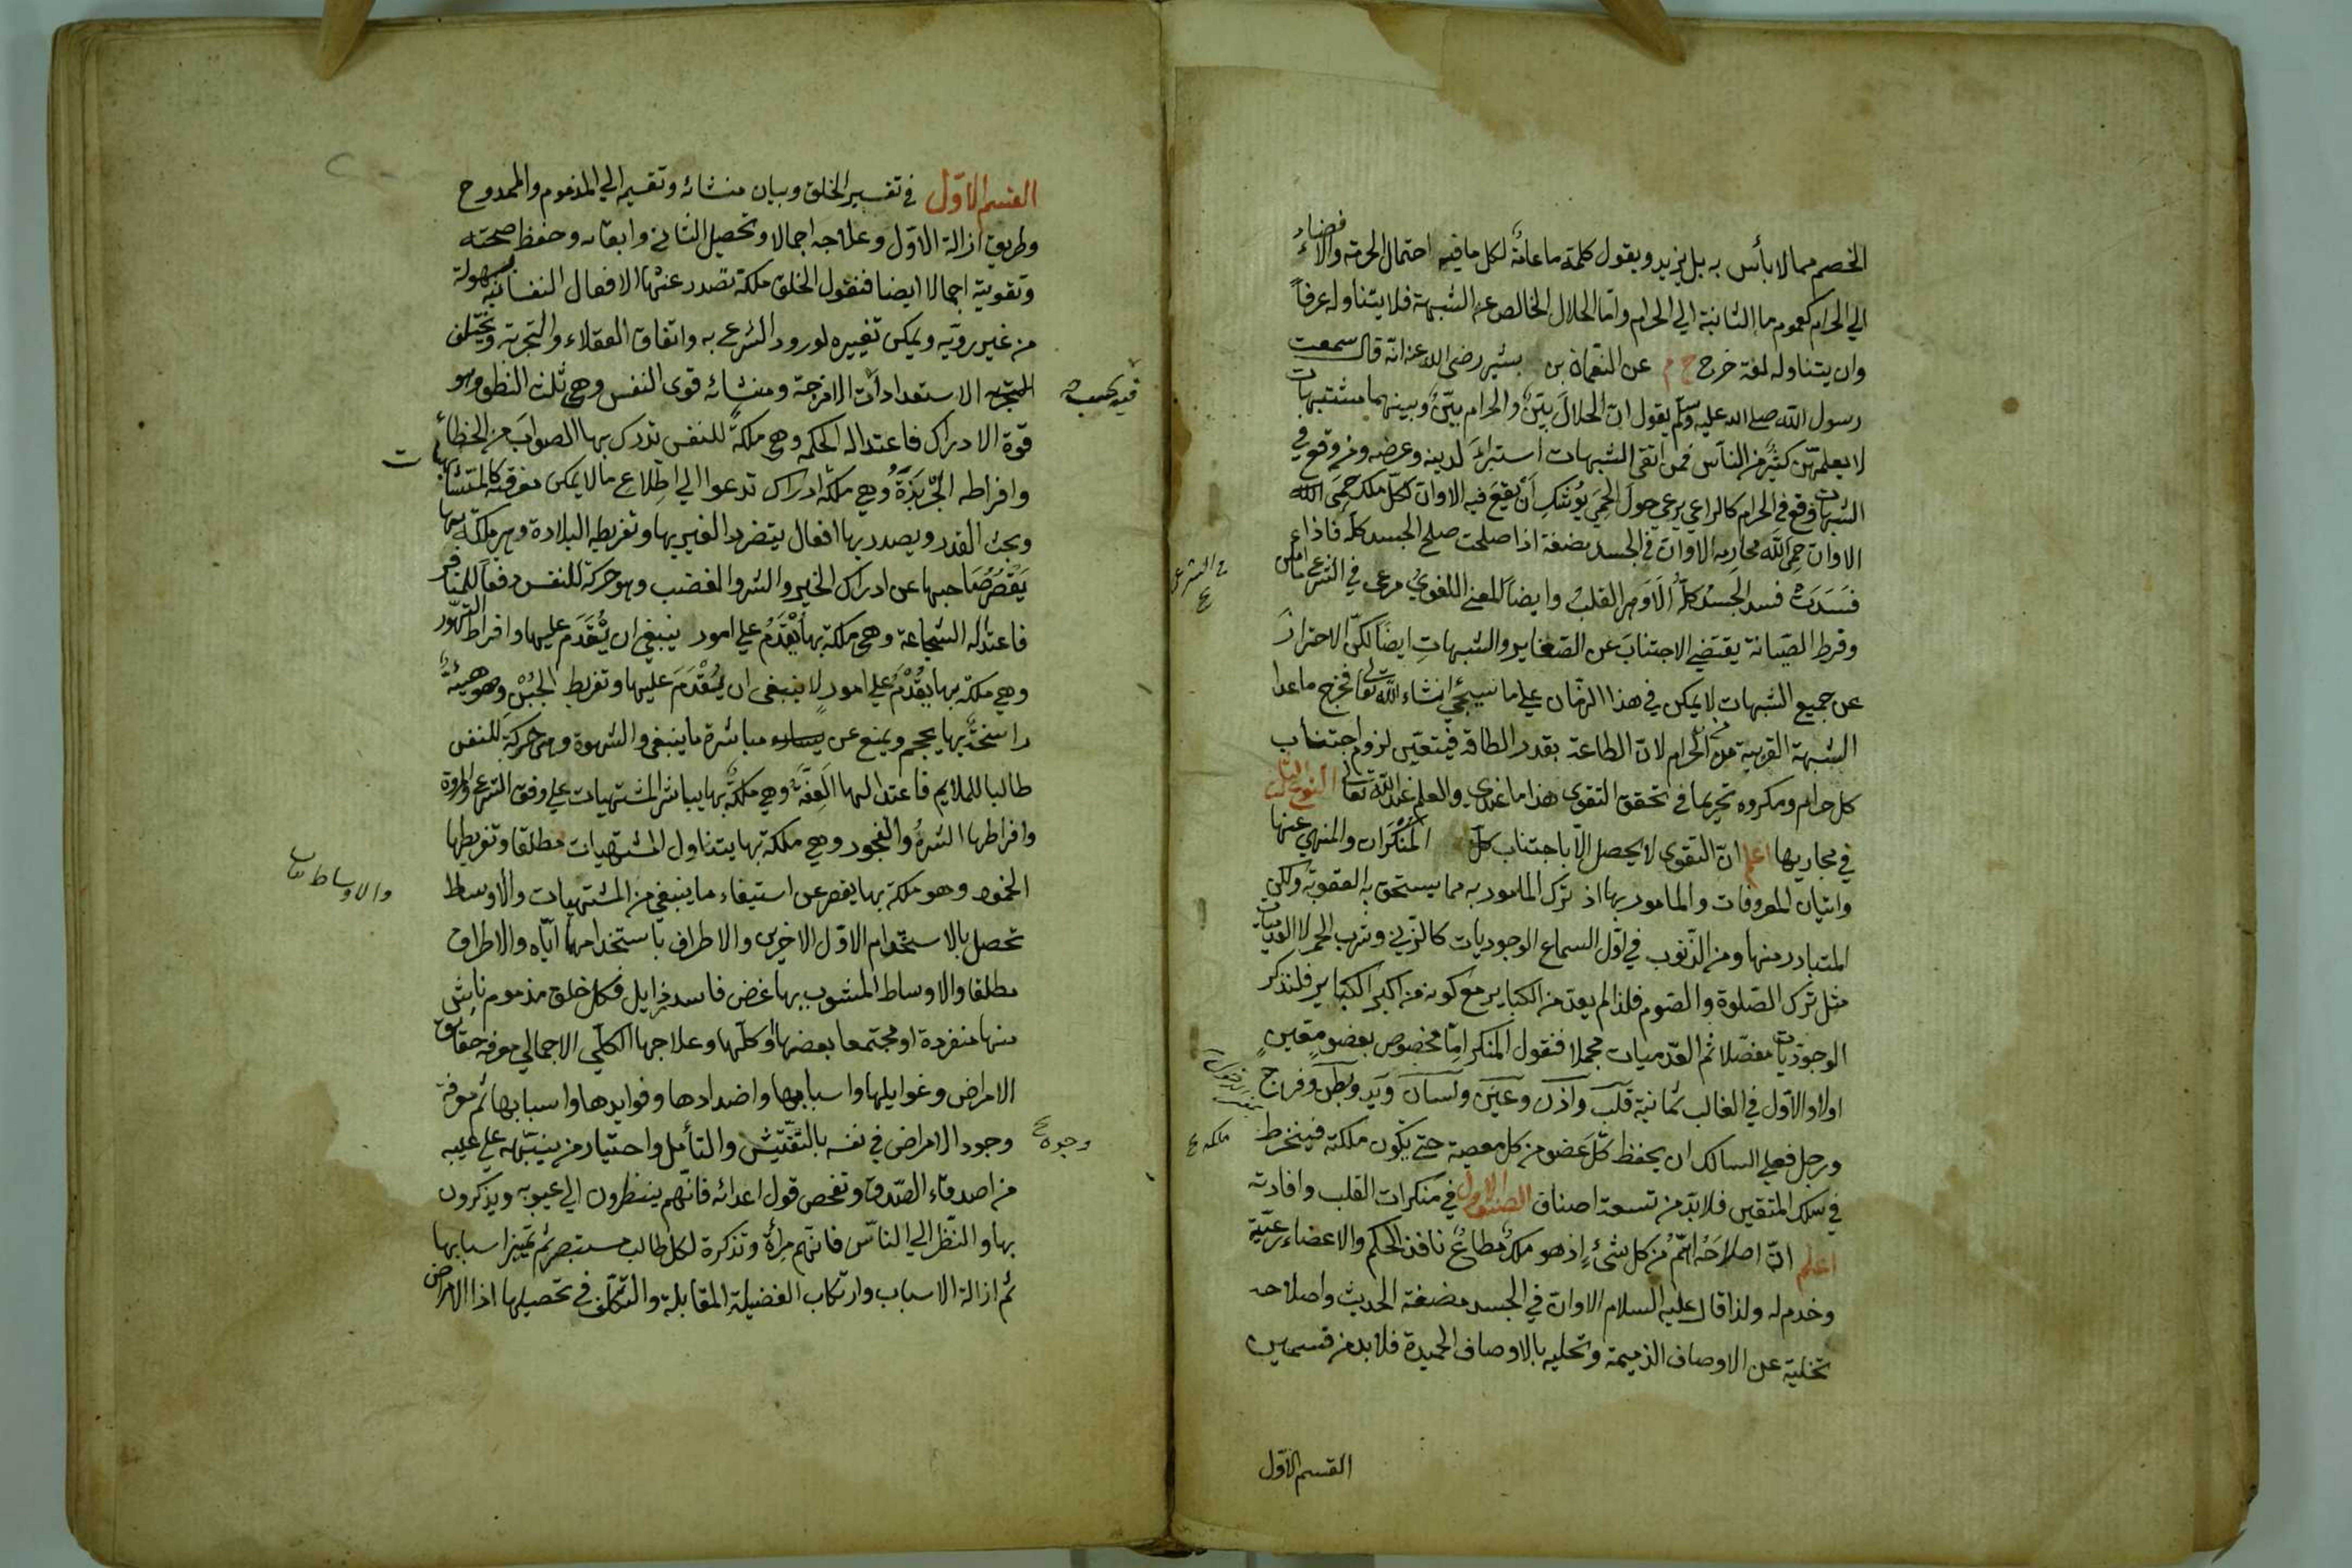 الخصم مما لا بأس به بل يزيد ويقول كلمة ما عامة لكل ما فيه احتمال الحرمة والافضاء
الي الحرام كعموم ما الثانية الي الحرام واما الحلال الخالص عن الشبهة فلا يتناوله عرفاً
وان يتناوله لغة خرج خ م عن النعمان بن بشير رضى الله عنه انه قال سمعت
رسول الله صلى الله عليه وسلم يقول ان الحلال بيّن والحرام بيّن وبينهما مشتبهات
لا يعلمهن كثير من الناس فمن اتقى الشبهات استبرأ لدينه وعرضه ومن وقع في
الشبهات وقع في الحرام كالراعي يرعي حول الحِمَي يُوشك أن يقع فيه الا وان لكل ملك حِمَي
الا وان حِمَي الله محارمه الا وان في الجسد مضغة اذا صلحت صلح الجسد كله فاذا
فَسَدَتْ فسد الجَسَدُ كلُّه اَلا وَهي القلبُ وايضاً المعنى اللغوي مرعى في الشرعي
وفرط الصيانة يقتضي الاجتناب عن الصغاير والشبهات ايضا لكن الاحتراز
عن جميع الشبهات لا يمكن في هذا الزمان علي ما سيجئ انشاء الله تعالى فخرج ما عدا
الشبهة القريبة من الحرام لان الطاعة بقدر الطاقة فيتعيّن لزوم اجتناب
كل حرام ومكروه تحريما في تحقق التقوى هذا ما عندي والعلم عند الله تعالى النوع الثالث
في مجاريها اعلم ان التقوى لا يحصل الّا باجتناب كل المُنْكَرات والمنهي عنها
واتيان المعروفات والمامور بها اذ ترك المامور به مما يستحق به العقوبة ولكن
المتبادر منها ومن الذنوب في اوّل السماع الوجوديات كالزني وشرب الخمر لا العدميات
مثل ترك الصلوة والصوم فلذا لم يعدّ من الكباير مع كونه من اكبر الكباير فلنذكر
الوجوديات مفصّلا ثم العدميات مجملا فنقول المنكر امّا مخصوص بعضو معيّن
اولا والاوّل في الغالب ثمانية قلب واذن وعين ولسان ويد وبطن وفرج
ورجل فعلي السالك ان يحفظ كلّ عضو من كل معصية حتى يكون ملكة فينخرط
في سلك المتقين فلا بدّ من تسعة اصناف الصنف الاول في منكرات القلب وافادته
اعلم انّ اصلاحَهُ اهَمُّ من كل شئٍ اذ هو ملكٌ مطاعٌ نافذ الحكم والاعضاء رعيّة
وخدم له ولذا قال عليه السلام الا وان في الجسد مضغة الحديث واصلاحه
تخلية عن الاوصاف الذميمة وتحليه بالاوصاف الحميدة فلا بد من قسمين
القسم الاوّل
ملكه
القسم الاوّل في تفسير الخلق وبيان منشائه وتقسيمه الي المذموم والممدوح
وطريق ازالة الاوّل وعلاجه اجمالا وتحصيل الثاني وابقائه وحفظ صحته
وتقويته اجمالا ايضا فنقول الخلق ملكة تصدر عنها الافعال النفسانية بسهولة
من غير رويّة ويمكن تغييره لورود الشرع به واتفاق العقلاء والتجربة ويختلف
الاستعدادات الامزجة ومنشائه قوى النفس وهي ثلث النطق وهو
قوة الادراك فاعتداله الحكمه وهي ملكةٌ للنفس تدرك بها الصواب من الخطأ
وافراطه الجَرْبَذَةُ وهي ملكة ادراك تدعوا الي اطلاع ما لا يمكن معرفته كالمتشابهات
وبحث القدر ويصدر بها افعال يتضرر الغير بها وتفريطه البلادة وهي ملكة بها
يَقْصُرُ صَاحبها عن ادراك الخير والشر والغضب وهو حركة للنفس دفعاً للمنافر
فاعتداله الشجاعة وهي ملكة بها يُقْدَمُ علي امور ينبغي ان يُقْدَمَ عليها وافراط التهوّر
وهي ملكة بها يُقْدَمُ علي امورٍ لا ينبغى ان يُقْدَمَ عليها وتفريط الجُبْن وهو هيئة
راسخة بها يحجم ويمنع عن مباشرة ما ينبغى والشهوة وهي حركة للنفس
طالبا للملايم فاعتدالها العِفَّة وهي ملكة بها يباشر المشتهيات علي وفق الشرع والمروة
وافراطها الشره والفجور وهي ملكة بها يتناول المشتهيات مطلقا وتفريطها
الخمود وهو ملكة بها يقصر عن استيفاء ما ينبغي من المشتهيات والاوساط
تحصل بالاستخدام الاوّل الاخرين والاطراف باستخدامهما ايّاه والاطراف
مطلقا والاوساط المشوب بها غرض فاسد رزايل فكل خلق مذموم ناش
منها منفردة او مجتمعا بعضها او كلها وعلاجها الكلي الاجمالي معرفة حقايق
الامراض وغوايلها واسبابها واضدادها وفوايدها واسبابها ثم معرفة
وجود الامراض في نفسه بالتفتيش والتأمل واختيار من ينبّهه على عيبه
من اصدقاء الصدق وتفحص قول اعدائه فانهم ينظرون الي عيوبه ويذكرون
بها والنظر الي الناس فانهم مرأة وتذكرة لكل طالب مستبصر ثم تمييز اسبابها
ثم ازالة الاسباب وارتكاب الفضيلة المقابلة والتكلّف في تحصيلها اذا الامراض
والاوساط
وجوه